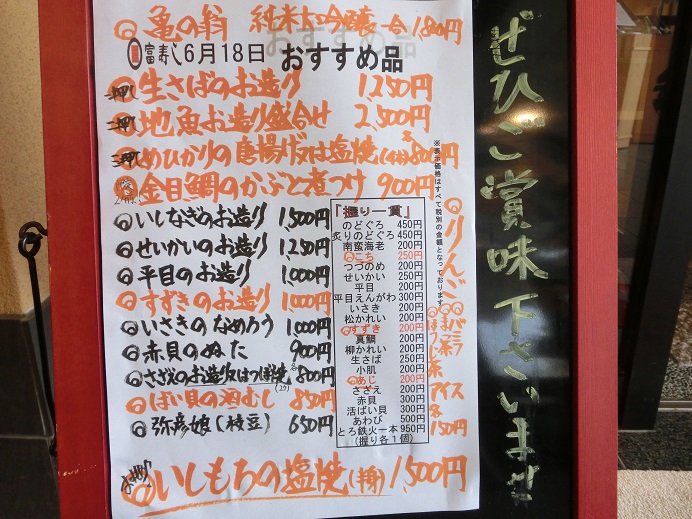 亀の翁 純米大吟醸 一合 1,800円
富寿し 6月18日 おすすめ品
生さばのお造り 1,250円
地魚お造り盛合せ 2,500円
めひかりの唐揚げ又は塩焼 800円
金目鯛のかぶと煮つけ 900円
いしなぎのお造り 1,500円
せいかいのお造り 1,250円
平目のお造り 1,000円
すずきのお造り 1,000円
いさきのなめろう 1,000円
赤貝のぬた 900円
さざえのお造り又はつぼ焼 各800円
ばい貝の酒むし 850円
弥彦娘(枝豆) 650円
いしもちの塩焼 1,500円
『握り一貫』
のどぐろ 450円
炙りのどぐろ 450円
南蛮海老 200円
こち 250円
つづのめ 200円
せいかい 250円
平目 200円
平目えんがわ 300円
いさき 200円
松かれい 200円
すずき 200円
真鯛 200円
柳かれい 200円
生さば 250円
小肌 200円
あじ 200円
さざえ 200円
赤貝 300円
活ばい貝 300円
あわび 500円
とろ鉄火一本 950円
(握り各1個)
※表示価格はすべて税別の金額となっております
りんご
バニラ
まっ茶
ほうじ茶
アイス
各150円
ぜひご賞味下さいませ